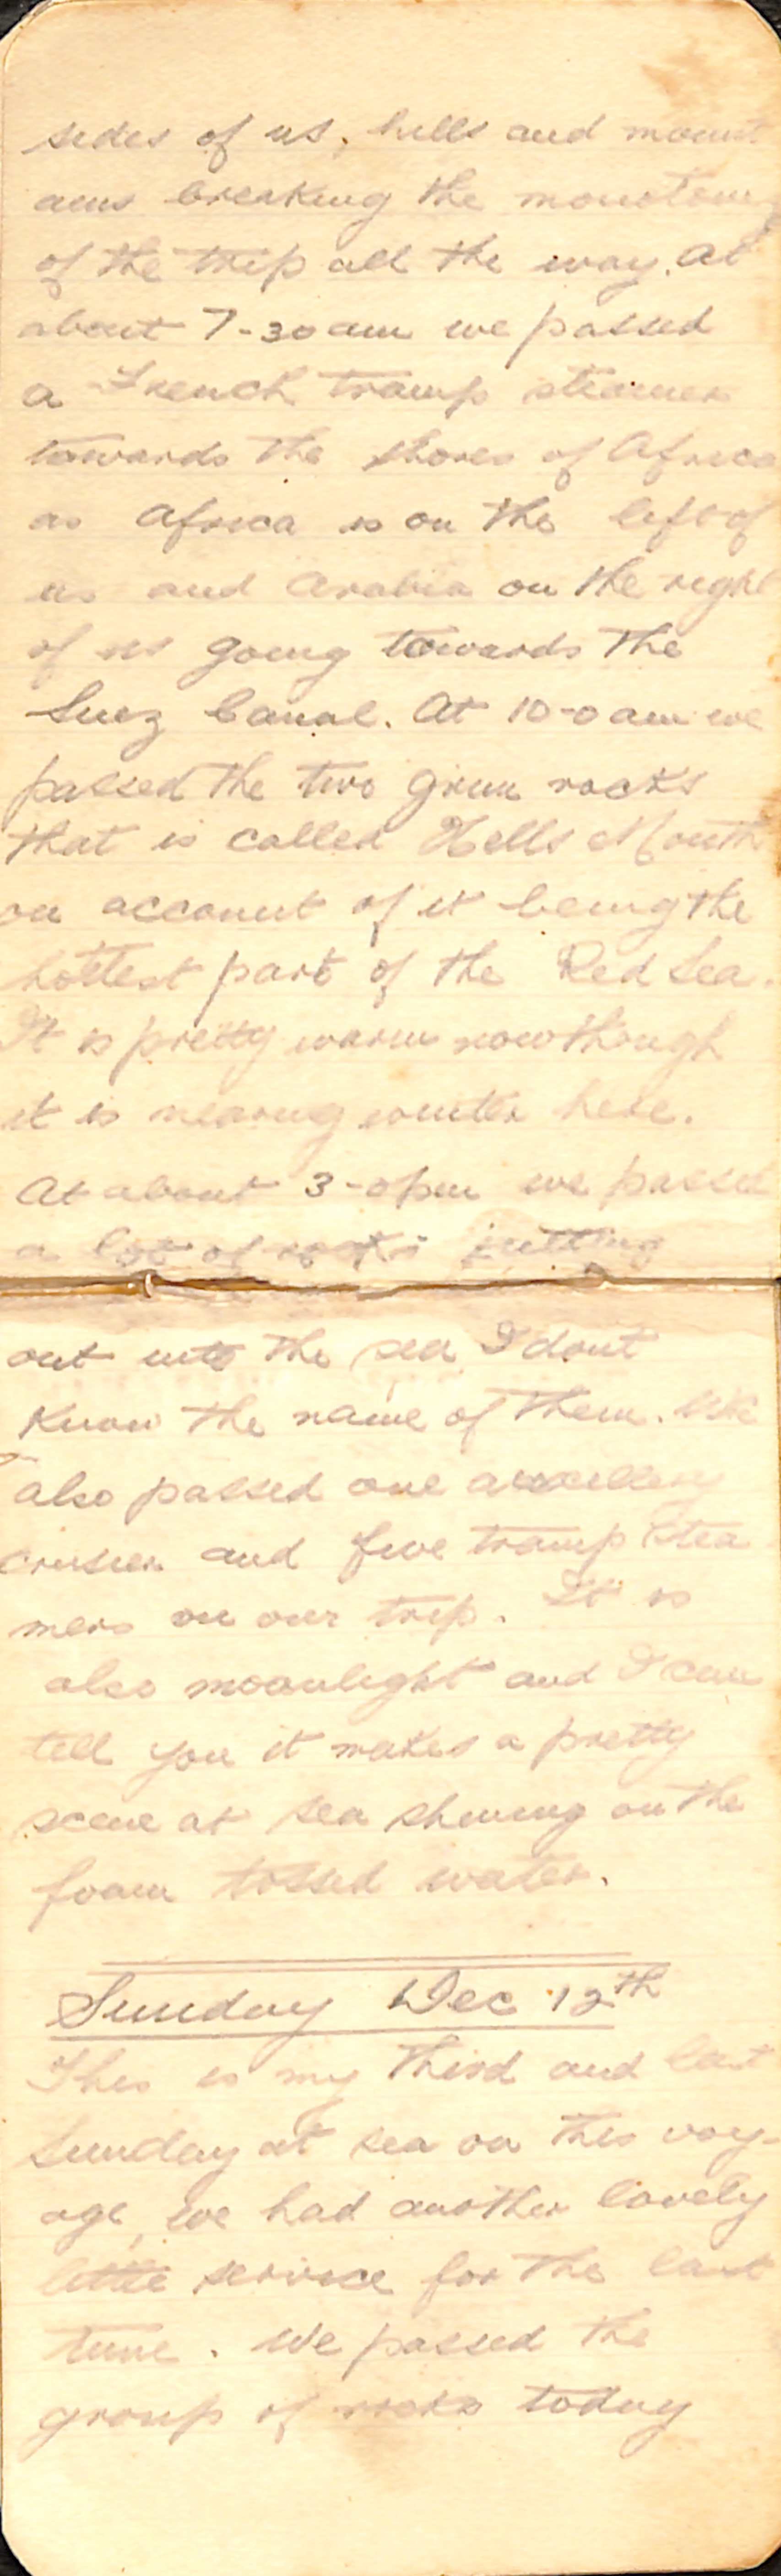 sides of us, hills and mount
ains breaking the monotony
of the trip all the way. At
about 7-30 am we passed
a French tramp steamer
towards the shores of Africa
as Africa is on the left of
us and Arabia on the right
of us going towards the
Suez Canal. At 10-0 am we
passed the two grim rocks
that is called Hells Mouth
on account of it being the
hottest part of the Red Sea.
It is pretty warm now though
it is nearing winter here.
At about 3-0 pm we passed
a lot of rocks jutting
out into the sea I dont
know the name of them. We
also passed one auxillery
cruiser and five tramp stea
mers on our trip. It is
also moonlight and I can
tell you it makes a pretty
scene at sea shining on the
foam tossed water.
Sunday Dec 12th
This is my third and last
Sunday at sea on this voy-
age, we had another lovely
little service for the last
time. We passed the
group of rocks today